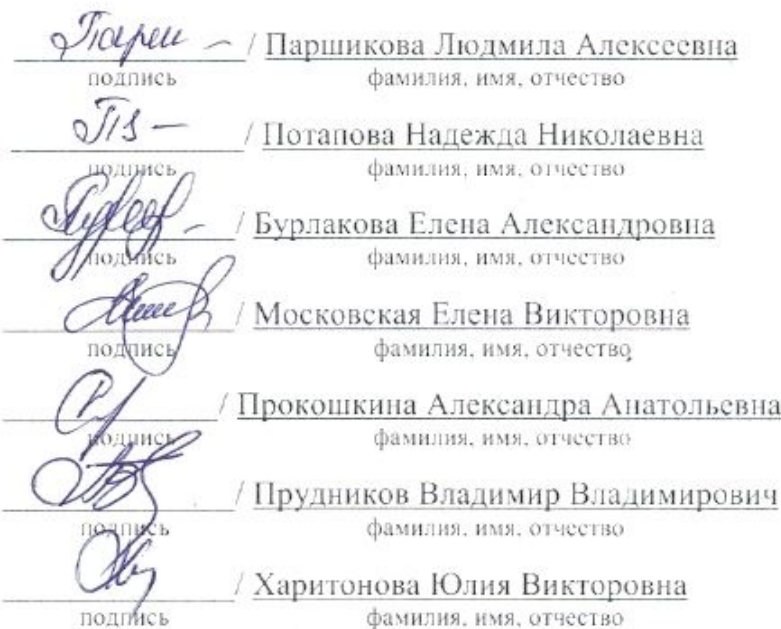 / Паршикова Людмила Алексеевна
подпись фамилия, имя, отчество
/ Потапова Надежда Николаевна
подпись фамилия, имя, отчество
/ Бурлакова Елена Александровна
подпись фамилия, имя, отчество
/ Московская Елена Викторовна
подпись фамилия, имя, отчество
/ Прокошкина Александра Анатольевна
подпись фамилия, имя, отчество
/ Прудников Владимир Владимирович
подпись фамилия, имя, отчество
/ Харитонова Юлия Викторовна
подпись фамилия, имя, отчество